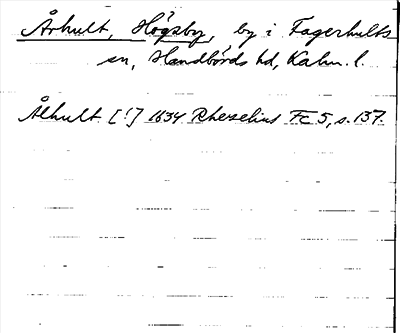 Århult, Högsby, by i Fagerhults
sn, Handbörds hd, Kalm. l.
Ålhult [!] 1634 Rhezelius Fc 5, s. 137.